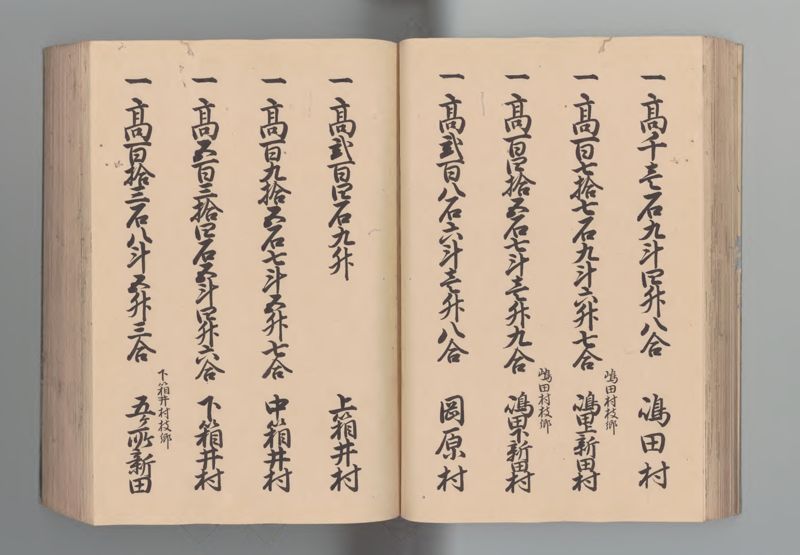 一 高千壱石九斗四升八合 嶋田村
一 高百七拾七石九斗六升七合 嶋田村枝郷 嶋田上新田村
一 高百四拾五石七斗壱升九合 嶋田村枝郷 嶋田下新田村
一 高弐百八石六斗壱升八合 岡原村
一 高弐百四石九升 上箱井村
一 高百九拾五石七斗五升七合 中箱井村
一 高五百三拾四石五斗四升六合 下箱井村
一 高百拾三石八斗五升三合 下箱井村枝郷 五ヶ所新田